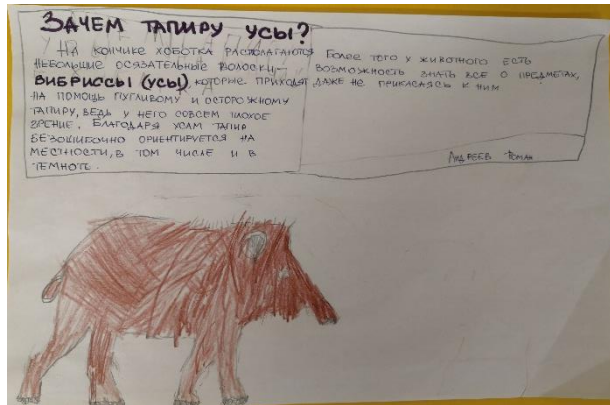 Зачем тапиру усы?
На кончике хоботка располагаются
небольшие осязательные волоски –
вибриссы (усы), которые приходят
на помощь пугливому и осторожному
тапиру, ведь у него совсем плохое
зрение. Благодаря усам тапир
безошибочно ориентируется на
местности, в том числе и в
темноте.
Более того у животного есть
возможность знать все о предметах,
даже не прикасаясь к ним
Андреев Роман